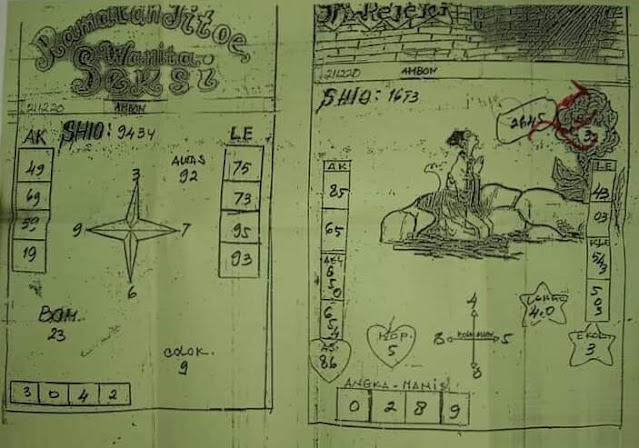 Ramalan Jitoe
Wanita
Seksi
211220 AMBON
SHIO: 9434
AK
49
69
59
19
LE
75
73
95
93
ALAS
92
3
9
7
6
BOM
23
COLOK
9
3 0 4 2
211220 AMBON
SHIO: 1673
2645
32
AK
85
65
6
5
0
6
5
4
AS
86
LE
43
03
KLE
5
4
3
5
0
3
KOP.
5
4
8
5
8
4.0
EKOR
3
ANGKA-MANIS
0 2 8 9